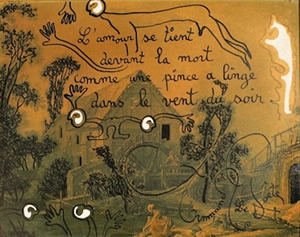 L'amour se tient
devant la mort
comme une pince a linge
dans le vent du soir.